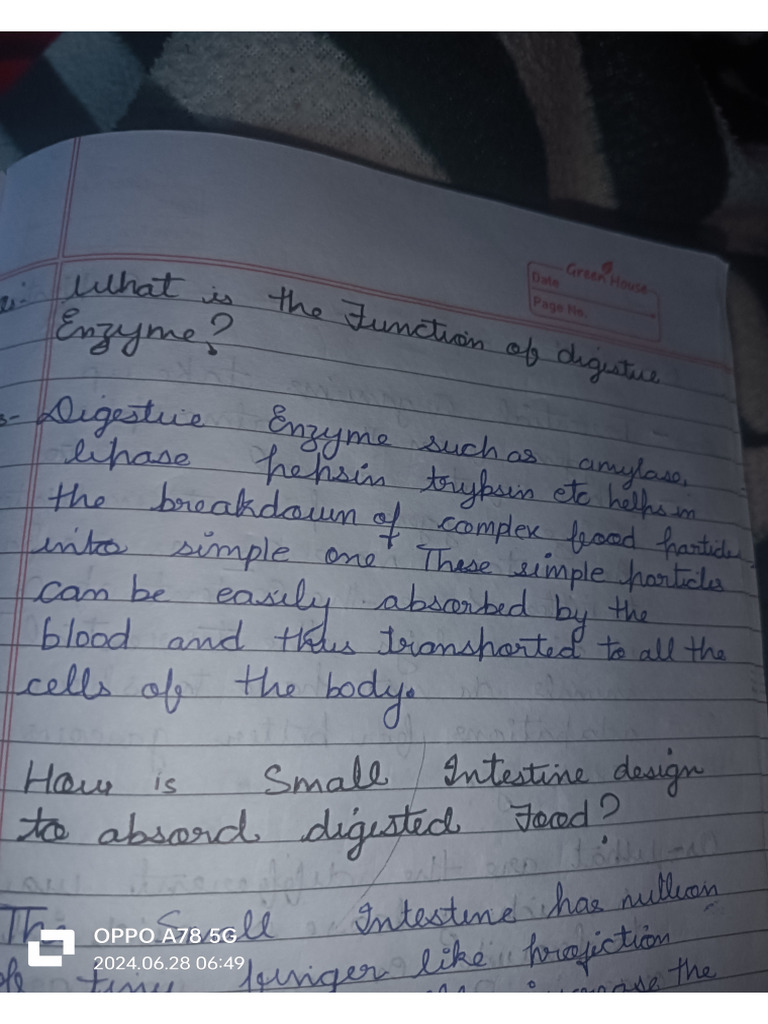 Green House
Date
Page No.
What is the Function of digestive
Enzyme?
Digestive Enzyme such as amylase,
lipase pepsin trypsin etc helps in
the breakdown of complex food particle
into simple one These simple particles
can be easily absorbed by the
blood and thus transported to all the
cells of the body.
How is Small Intestine design
to absord digested Food?
The Small Intestine has million
of tiny finger like projection
the
OPPO A78 5G
2024.06.28 06:49